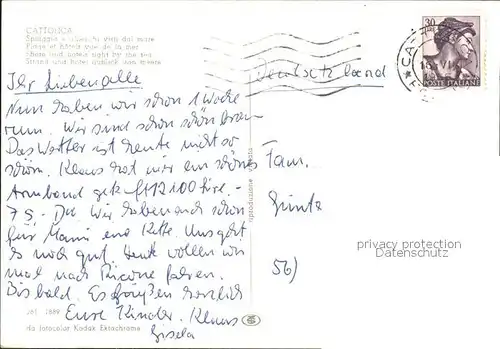 CATTOLICA
Spiaggia e alberghi visti dal mare
Plage et hôtels vus de la mer
Shore and hotels right by the sea
Strand und hotels
30
LIRE
POSTE ITALIANE
Deutschland
Ihr Lieben alle
Nun haben wir schon 1 Woche
rum. Wir sind schon schön braun
Das Wetter ist heute nicht so
schön. Klaus hat mir ein schönes
Armband gek. ft 12100 Lire.-
79.- DM. Wir haben auch schon
für Mami eine Kette. Uns geht
es noch gut. Heute wollen wir
mal nach Riccione fahren.
Bis bald. Es grüßen herzlich
Eure Kinder. Klaus
Gisela
Fam.
Günte
56)
privacy protection
Datenschutz
riproduzione vietata
261 1889
da fotocolor Kodak Ektachrome